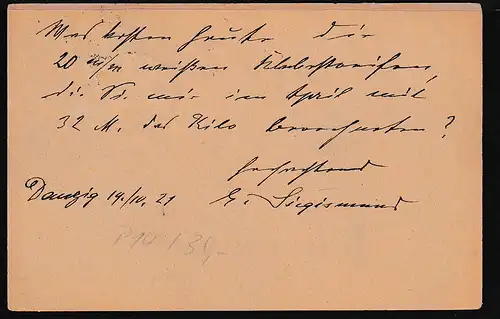 Was kosten heute die
20 m/m weißen Klebestreifen,
die Sie mir im April mit
32 M. das Kilo berechneten?
Hochachtend
Danzig 14./IV. 21 E. Siegismund
P10 / 39,-